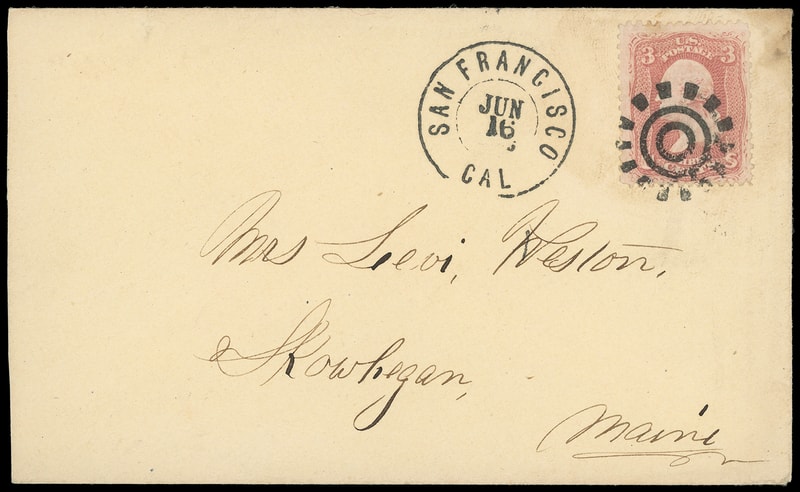 SAN FRANCISCO
JUN
16
CAL
3 U.S. 3
POSTAGE
Mrs Levi, Weston,
Skowhegan,
Maine